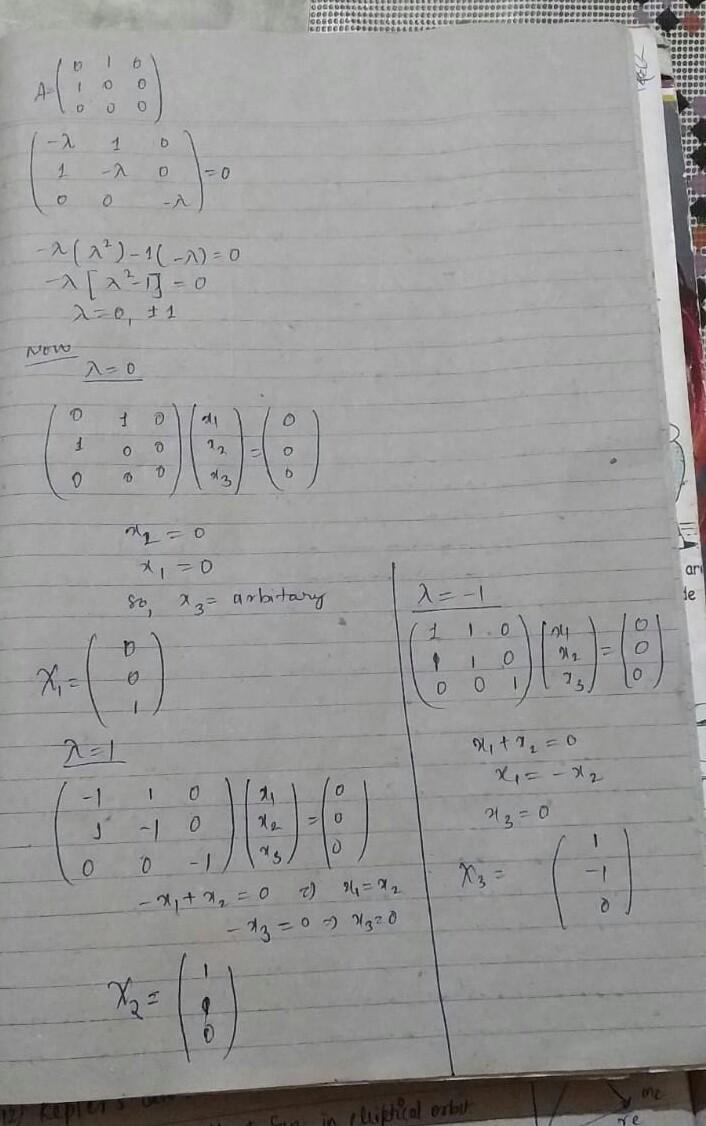 A=(0 1 0
1 0 0
0 0 0)
(-λ 1 0
1 -λ 0
0 0 -λ)=0
-λ(λ²)-1(-λ)=0
-λ[λ²-1]=0
λ=0, ±1
Now
λ=0
(0 1 0
1 0 0
0 0 0)(x₁
x₂
x₃)=(0
0
0)
x₂=0
x₁=0
so, x₃= arbitary
X₁=(0
0
1)
λ=1
(-1 1 0
1 -1 0
0 0 -1)(x₁
x₂
x₃)=(0
0
0)
-x₁+x₂=0 ⇒ x₁=x₂
-x₃=0⇒x₃=0
X₂=(1
1
0)
λ=-1
(1 1 0
1 1 0
0 0 1)(x₁
x₂
x₃)=(0
0
0)
x₁+x₂=0
x₁=-x₂
x₃=0
X₃=(1
-1
0)
12) Kepler's
in elliptical orbit
me
re
ar